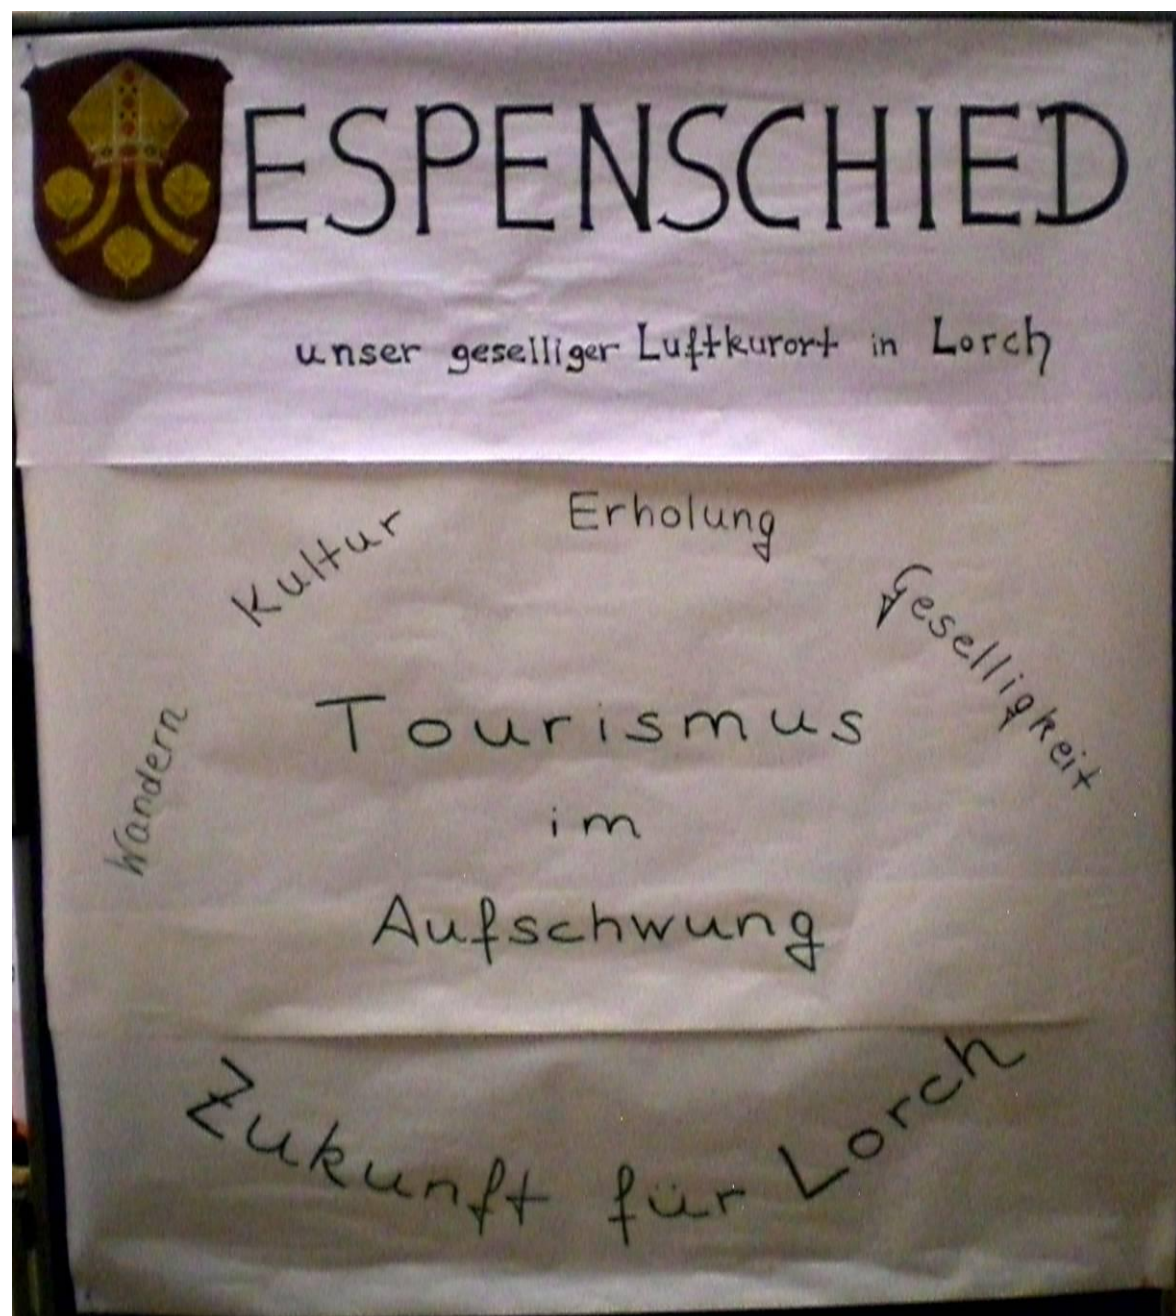 ESPENSCHIED
unser geselliger Luftkurort in Lorch
Wandern
Kultur
Erholung
Geselligkeit
Tourismus
im
Aufschwung
Zukunft für Lorch